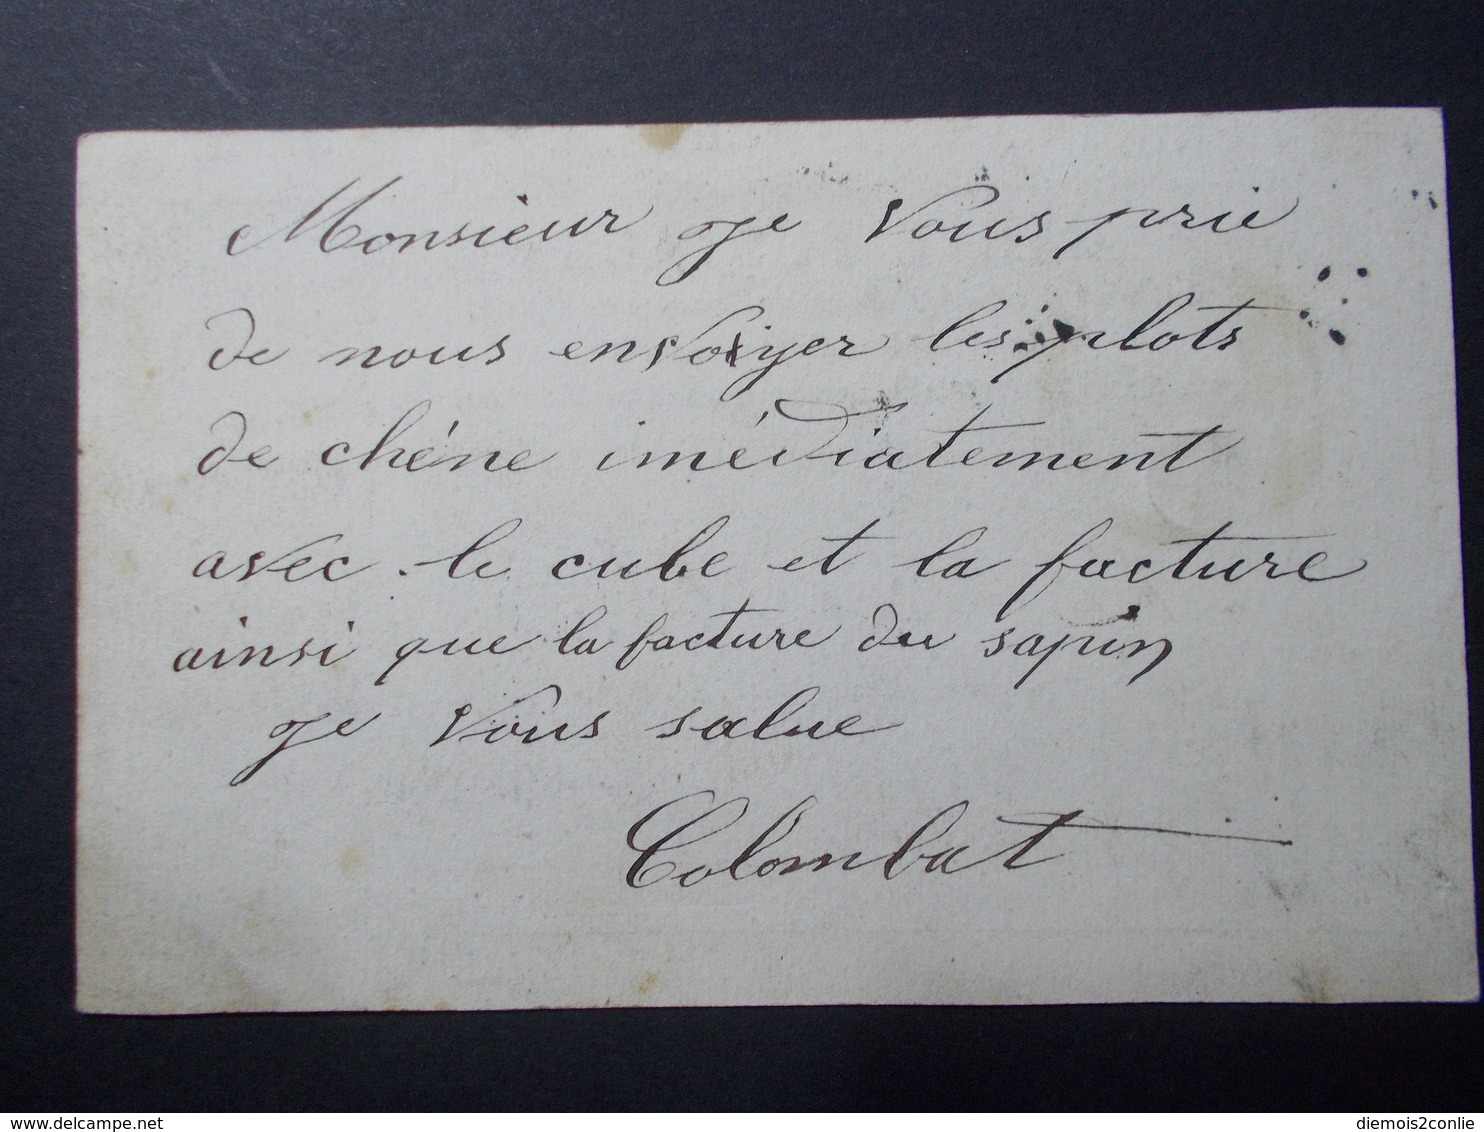 Monsieur je vous prie
de nous envoiyer les plots
de chéne imédiatement
avec le cube et la facture
ainsi que la facture du sapin
je vous salue
Colombat
delcampe.net
diemois2conlie